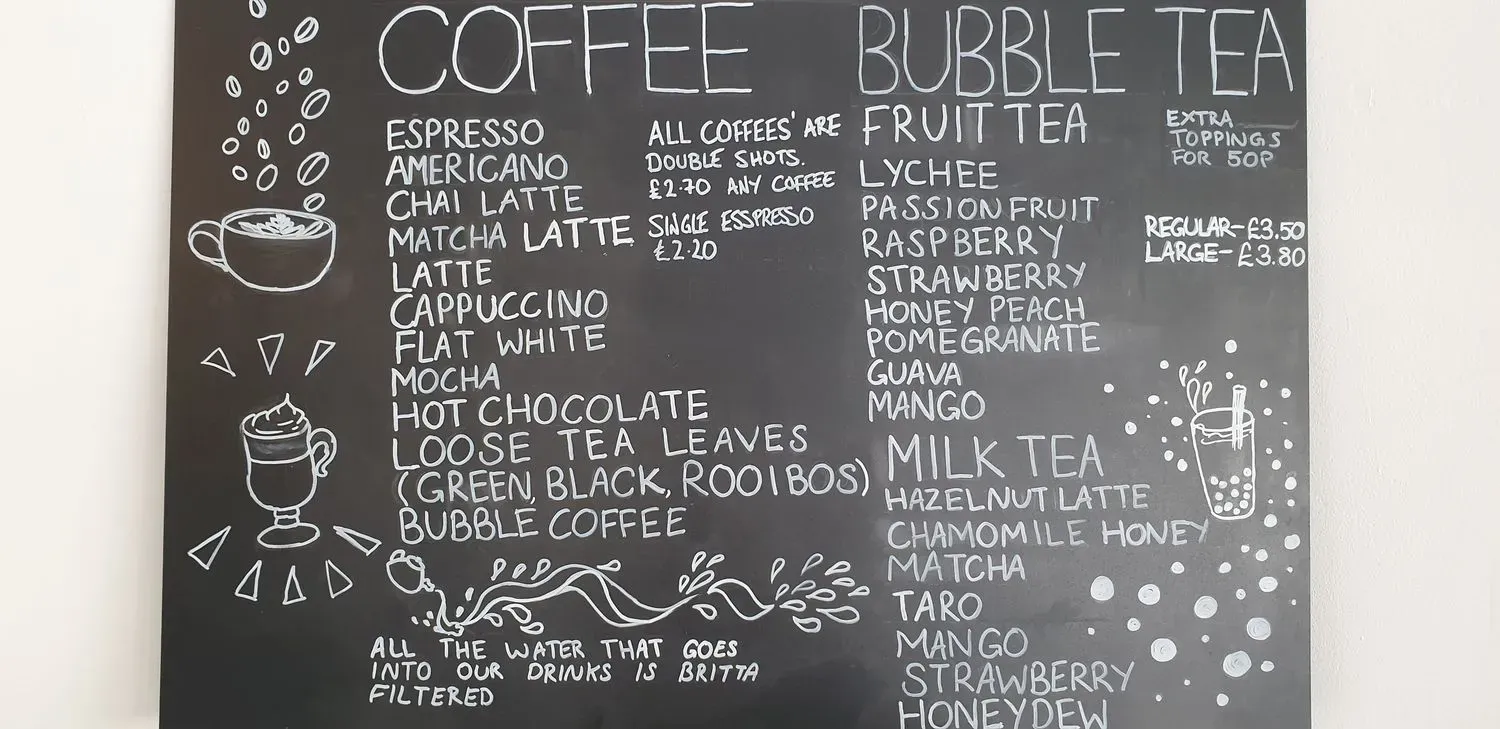 COFFEE
ESPRESSO
AMERICANO
CHAI LATTE
MATCHA LATTE
LATTE
CAPPUCCINO
FLAT WHITE
MOCHA
HOT CHOCOLATE
LOOSE TEA LEAVES
(GREEN, BLACK, ROOIBOS)
BUBBLE COFFEE
ALL COFFEES' ARE
DOUBLE SHOTS.
£2.70 ANY COFFEE
SINGLE ESSPRESSO
£2.20
ALL THE WATER THAT GOES
INTO OUR DRINKS IS BRITTA
FILTERED
BUBBLE TEA
FRUIT TEA
LYCHEE
PASSIONFRUIT
RASPBERRY
STRAWBERRY
HONEY PEACH
POMEGRANATE
GUAVA
MANGO
EXTRA
TOPPINGS
FOR 50P
REGULAR-£3.50
LARGE-£3.80
MILK TEA
HAZELNUT LATTE
CHAMOMILE HONEY
MATCHA
TARO
MANGO
STRAWBERRY
HONEYDEW